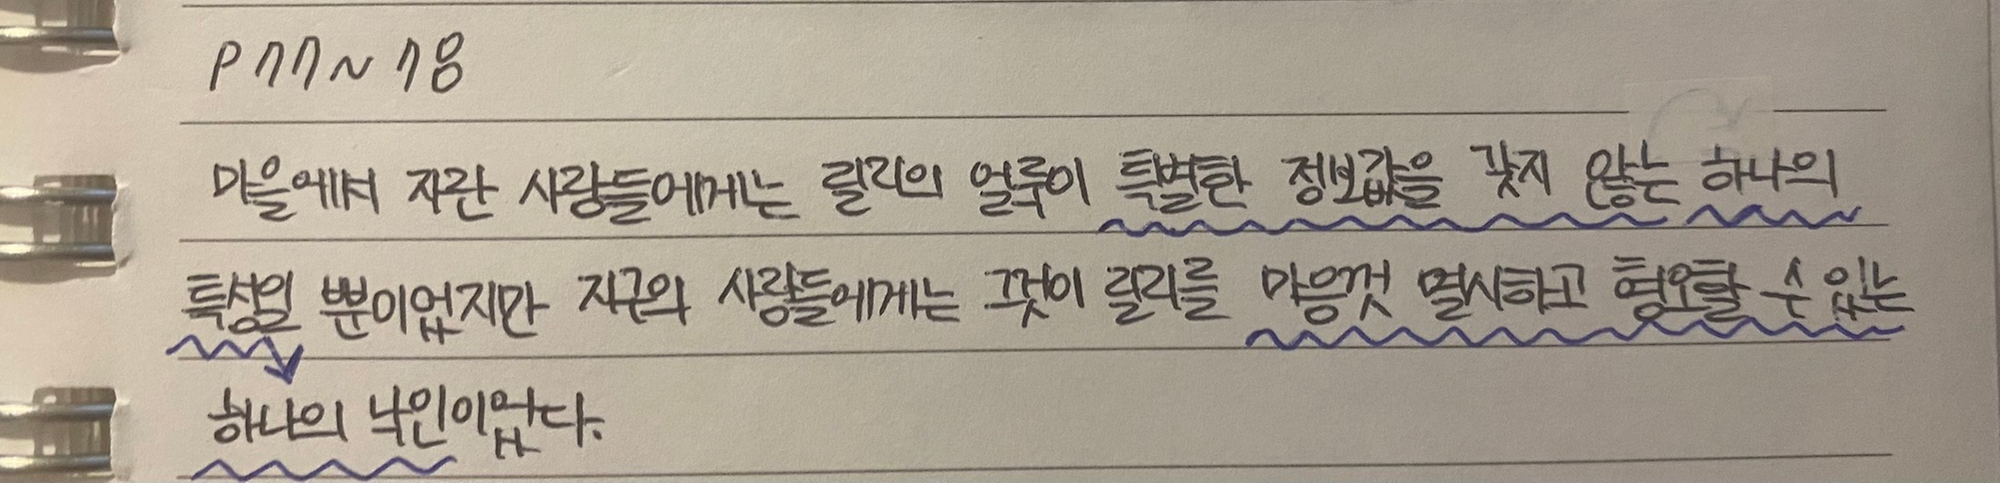 P 77~78
마을에서 자란 사람들에게는 릴리의 얼룩이 특별한 정보값을 갖지 않는 하나의
특성일 뿐이었지만 지구의 사람들에게는 그것이 릴리를 마음껏 멸시하고 혐오할 수 있는
하나의 낙인이었다.